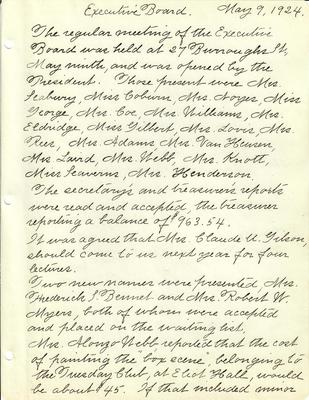 Executive Board. May 9, 1924.
The regular meeting of the Executive
Board was held at 27 Burroughs St.
May ninth, and was opened by the
President. Those present were Mrs.
Seabury, Miss Coburn, Mrs. Noyes, Miss
George, Mrs. Coe, Mrs. Williams, Mrs.
Eldridge, Miss Gilbert, Mrs. Lovis, Mrs.
Rees, Mrs. Adams Mrs. Van Heusen,
Mrs Laird, Mrs. Webb, Mrs. Knott,
Miss Seaverns, Mrs. Henderson.
The secretary's and treasurer's reports
were read and accepted, the treasurer
reporting a balance of $963.54.
It was agreed that Mrs. Claude U. Gilson,
should come to us next year for four
lectures.
Two new names were presented, Mrs.
Frederick S. Bennet and Mrs. Robert W.
Myers, both of whom were accepted
and placed on the waiting list.
Mrs. Alonzo Webb reported that the cost
of painting the box scene, belonging to
the Tuesday Club, at Eliot Hall, would
be about $45. If that included minor